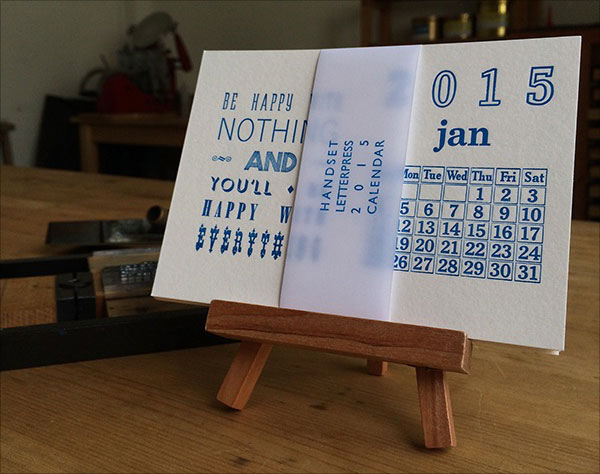 BE HAPPY
NOTHIN
AND
YOU'LL
HAPPY W
EVERYTH
HANDSET
LETTERPRESS
2015
CALENDAR
2015
jan
Mon Tue Wed Thu Fri Sat
1 2 3
5 6 7 8 9 10
12 13 14 15 16 17
19 20 21 22 23 24
26 27 28 29 30 31